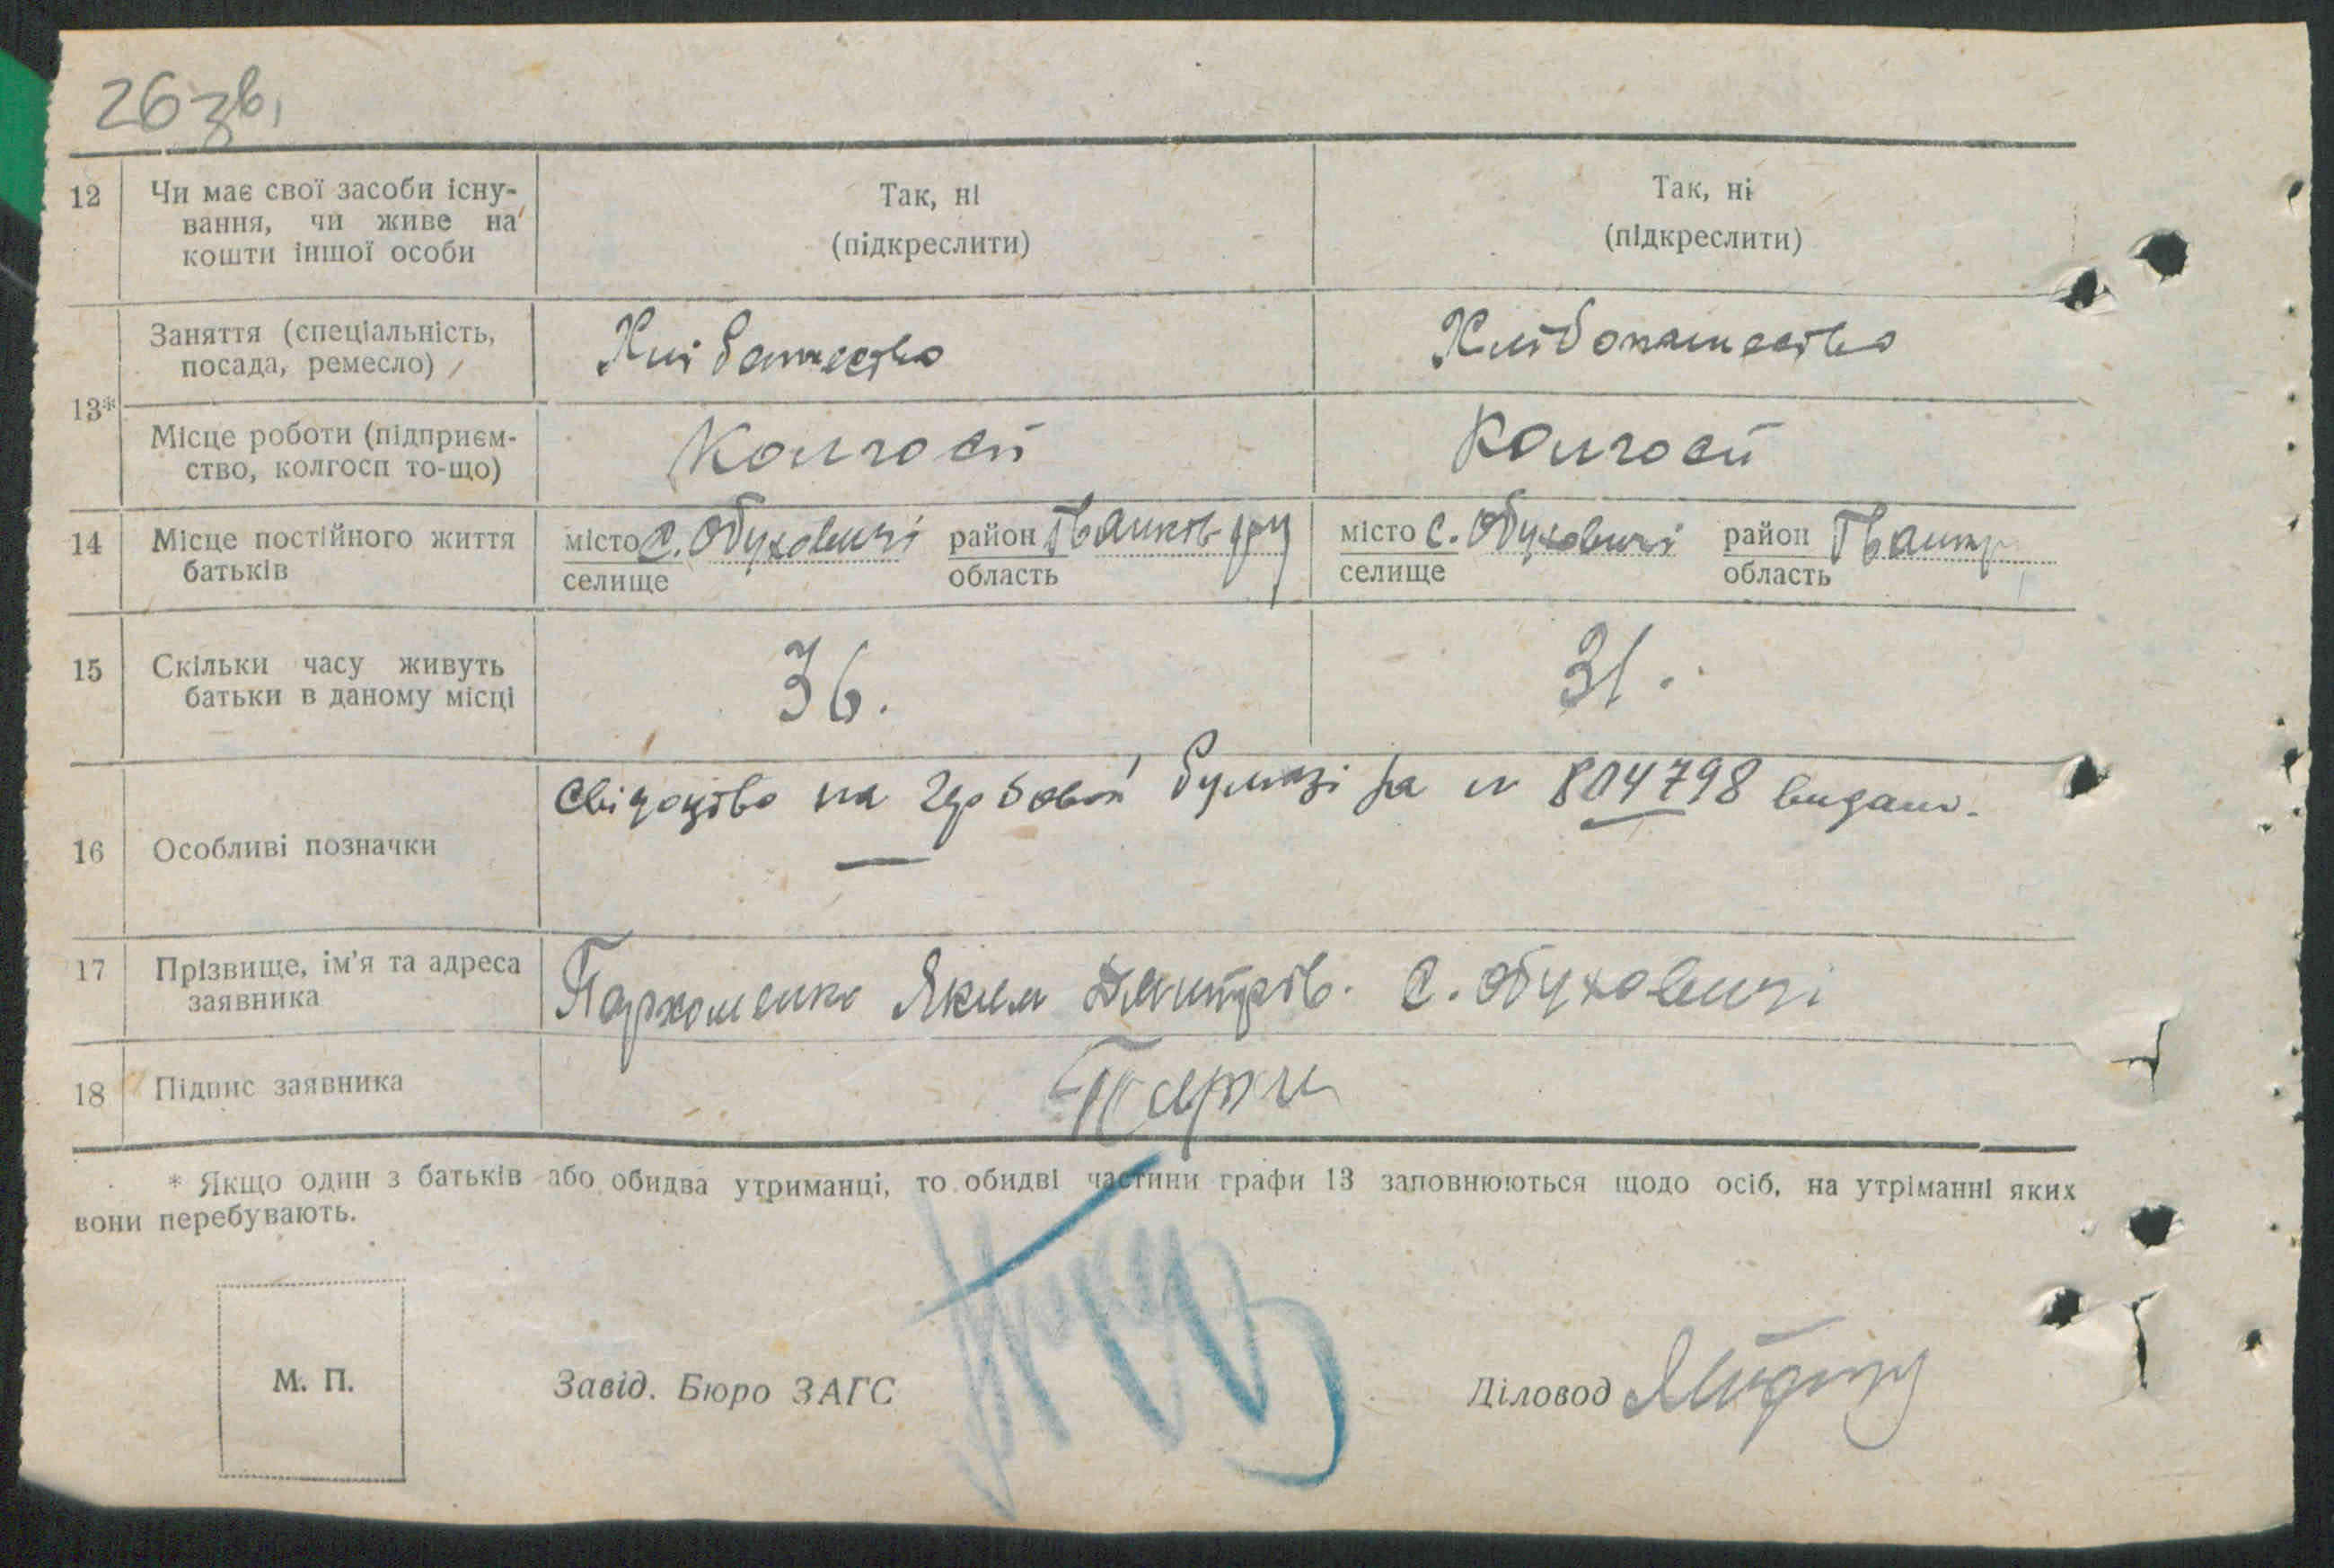 26 зв.
12 Чи має свої засоби існу-
вання, чи живе на
кошти іншої особи
Так, ні
(підкреслити)
Так, ні
(підкреслити)
13*
Заняття (спеціальність,
посада, ремесло)
Хлібопашество
Місце роботи (підприєм-
ство, колгосп то-що)
Колгосп
Колгосп
14 Місце постійного життя
батьків
місто с. Обуховичі район
селище область
місто с. Обуховичі район
селище область
15 Скільки часу живуть
батьки в даному місці
36.
31.
16 Особливі позначки
Свідоцтво на гробовой бумазі за н 804798 видано.
17 Прізвище, ім'я та адреса
заявника
Пархоменко Яким Дмитров. С. Обуховичі
18 Підпис заявника
* Якщо один з батьків або обидва утриманці, то обидві частини графи 13 заповнюються щодо осіб, на утріманні яких
вони перебувають.
М. П.
Завід. Бюро ЗАГС
Діловод